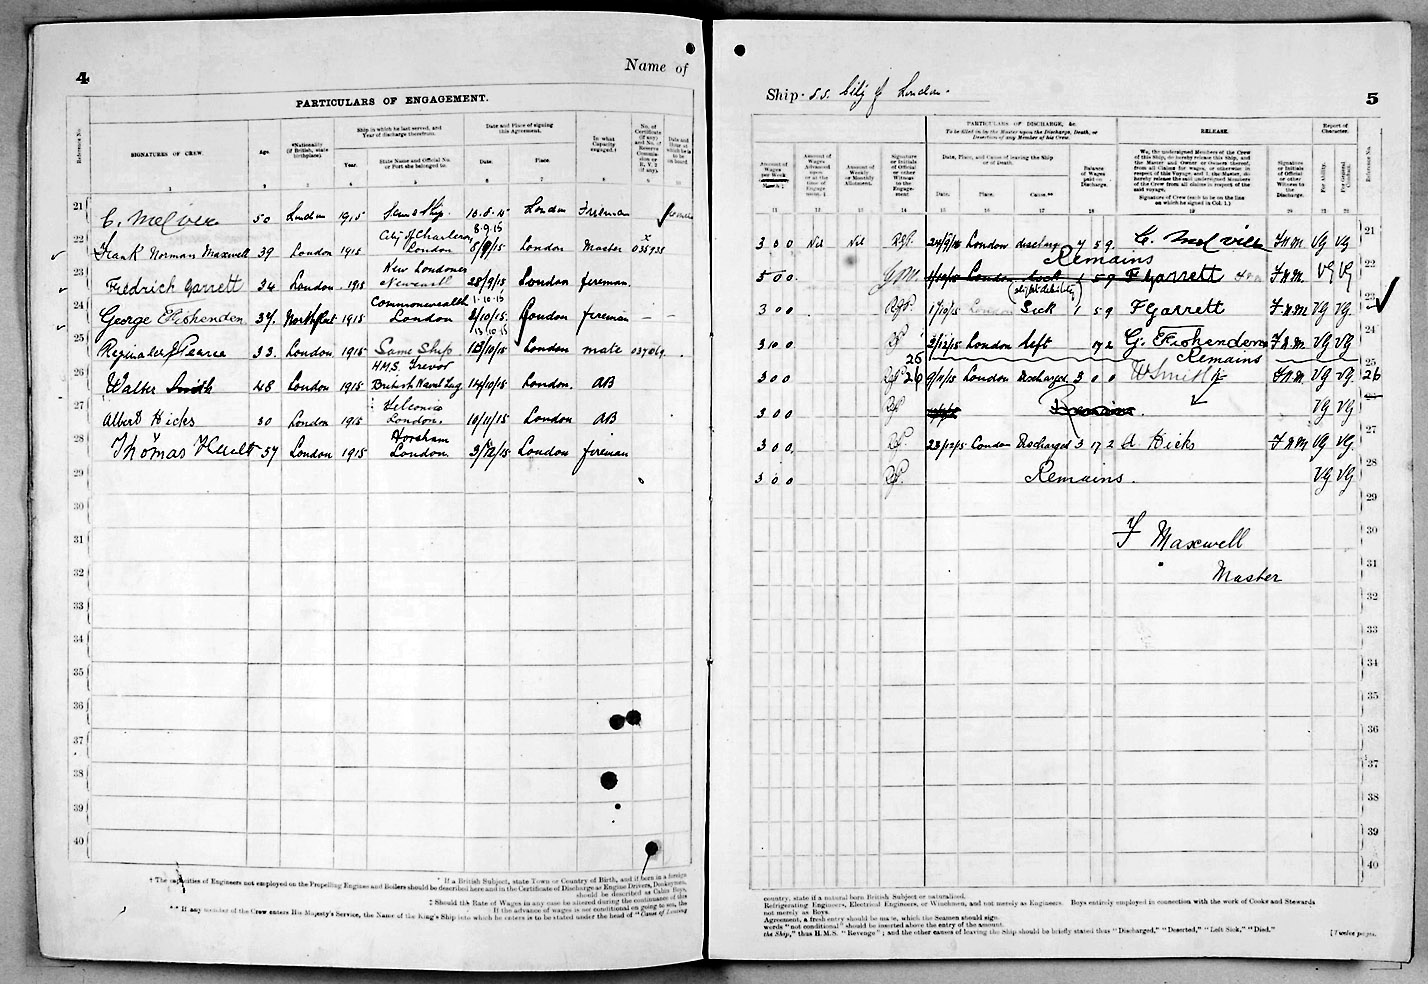 4
Name of
PARTICULARS OF ENGAGEMENT.
Reference No.
SIGNATURES OF CREW.
Age.
*Nationality (if British, state birthplace).
Ship in which he last served, and Year of discharge therefrom.
Year.
State Name and Official No. or Port she belonged to.
Date and Place of signing this Agreement.
Date.
Place.
In what Capacity engaged.†
No. of Certificate (if any) and No. of Reserve Commission or R.V. 2 (if any)
Date and Hour at which he is to be on board.
1 2 3 4 5 6 7 8 9 10
21 C. Melvier 50 London 1915 Same Ship. London Fireman
8.9.15
22 Frank Norman Maxwell 39 London 1915 City of Charleroi London 8/9/15 London Master 035935
23 Fredrich Garrett 34 London 1915 New Londoner Newcastle 28/9/15 London fireman.
1-10-15
24 George E Rishenden 34. Northfleet 1915 Commonwealth London 2/10/15 London fireman — —
13/10/15
25 Reginald J Pearce 33. London 1915 Same Ship London mate 037069
26 Walter Smith 48 London 1915 H.M.S. Trevor British Naval Lug 14/10/15 London. AB
27 Albert Hicks 30 London 1915 Telconia London. 10/11/15 London AB
28 Thomas 57 London 1915 Horsham London. 3/12/15 London fireman
29
30
31
32
33
34
35
36
37
38
39
40
* If a British Subject, state Town or Country of Birth, and if born in a foreign
† The capacities of Engineers not employed on the Propelling Engines and Boilers should be described here and in the Certificate of Discharge as Engine Drivers, Donkeymen,
should be described as Cabin Boys,
‡ Should the Rate of Wages in any case be altered during the continuance of this
If the advance of wages is not conditional on going to sea, the
** If any member of the Crew enters His Majesty's Service, the Name of the King's Ship into which he enters is to be stated under the head of "Cause of Leaving
Ship. S.S. City of London.
5
PARTICULARS OF DISCHARGE, &c.
To be filled in by the Master upon the Discharge, Death, or Desertion of any Member of his Crew.
RELEASE.
Report of Character.
Amount of Wages per Week or Month.‡
Amount of Wages Advanced upon or at the time of Engagement.‡
Amount of Weekly or Monthly Allotment.
Signature or Initials of Official or other Witness to the Engagement
Date, Place, and Cause of leaving the Ship or of Death.
Date.
Place.
Cause.**
Balance of Wages paid on Discharge.
We, the undersigned Members of the Crew of this Ship, do hereby release this Ship, and the Master and Owner or Owners thereof, from all Claims for wages, or otherwise in respect of this Voyage, and I, the Master, do hereby release the said undersigned Members of the Crew from all claims in respect of the said voyage.
Signature of Crew (each to be on the line on which he signed in Col. 1.)
Signature or Initials of Official or other Witness to the Discharge.
For Ability.
For General Conduct.
Reference No.
11 12 13 14 15 16 17 18 19 20 21 22
3 0 0 Nil Nil London discharge 7 5 9. C. Melvier F.N.M. VG VG 21
Remains
5 0 0. London Sick 1 5 9 F Garrett F.N.M. VG VG 22
(slight debility)
3 0 0 1/10/15 London Sick 1 5 9 F Garrett F.N.M VG VG 23
3 0 0 2/12/15 London left 17 2 G. E Rishenden F.N.M. VG VG 24
25 Remains 25
3 0 0 26 9/11/15 London Discharged 3 0 0 W Smith F.N.M. VG VG. 26
3 0 0 Remains. VG VG 27
3 0 0. 23/12/15 London Discharged 3 17 2 A. Hicks F.N.M VG VG.
3 0 0 Remains. VG VG 28
29
30
F Maxwell
31
Master
32
33
34
35
36
37
38
39
40
country, state if a natural born British Subject or naturalised.
Refrigerating Engineers, Electrical Engineers, or Winchmen, and not merely as Engineers. Boys entirely employed in connection with the work of Cooks and Stewards
not merely as Boys.
Agreement, a fresh entry should be made, which the Seamen should sign.
words "not conditional" should be inserted above the entry of the amount.
the Ship," thus H.M.S. "Revenge"; and the other causes of leaving the Ship should be briefly stated thus "Discharged," "Deserted," "Left Sick," "Died."
[Twelve pages.